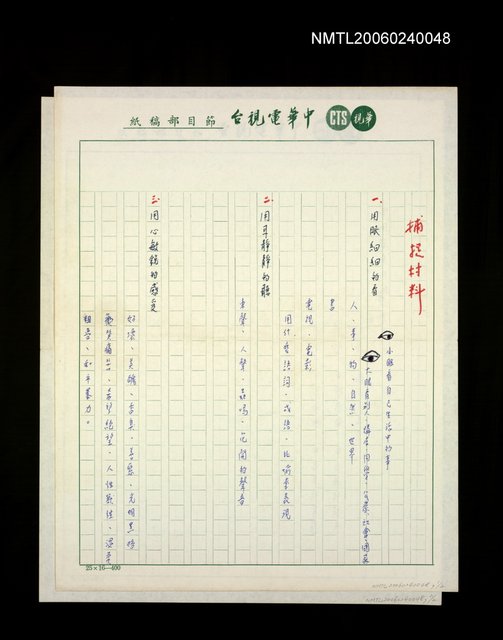 NMTL20060240048
中華電視台 節目部稿紙
CTS 華視
捕捉材料
一、用眼細細的看
小眼看自己生活中的事
大眼看別人、讀者、同學、家、社會、國家
人、事、物、自然、世界
書
電視、電影
用什麼語詞、成語、比喻來表現
二、用耳靜靜的聽
車聲、人聲、蟲鳴、花開的聲音
三、用心敏銳的感受
好壞、美醜、真、善惡、光明黑暗
絕望、人性
粗魯、和平暴力。
25×16—400
NMTL20060240048